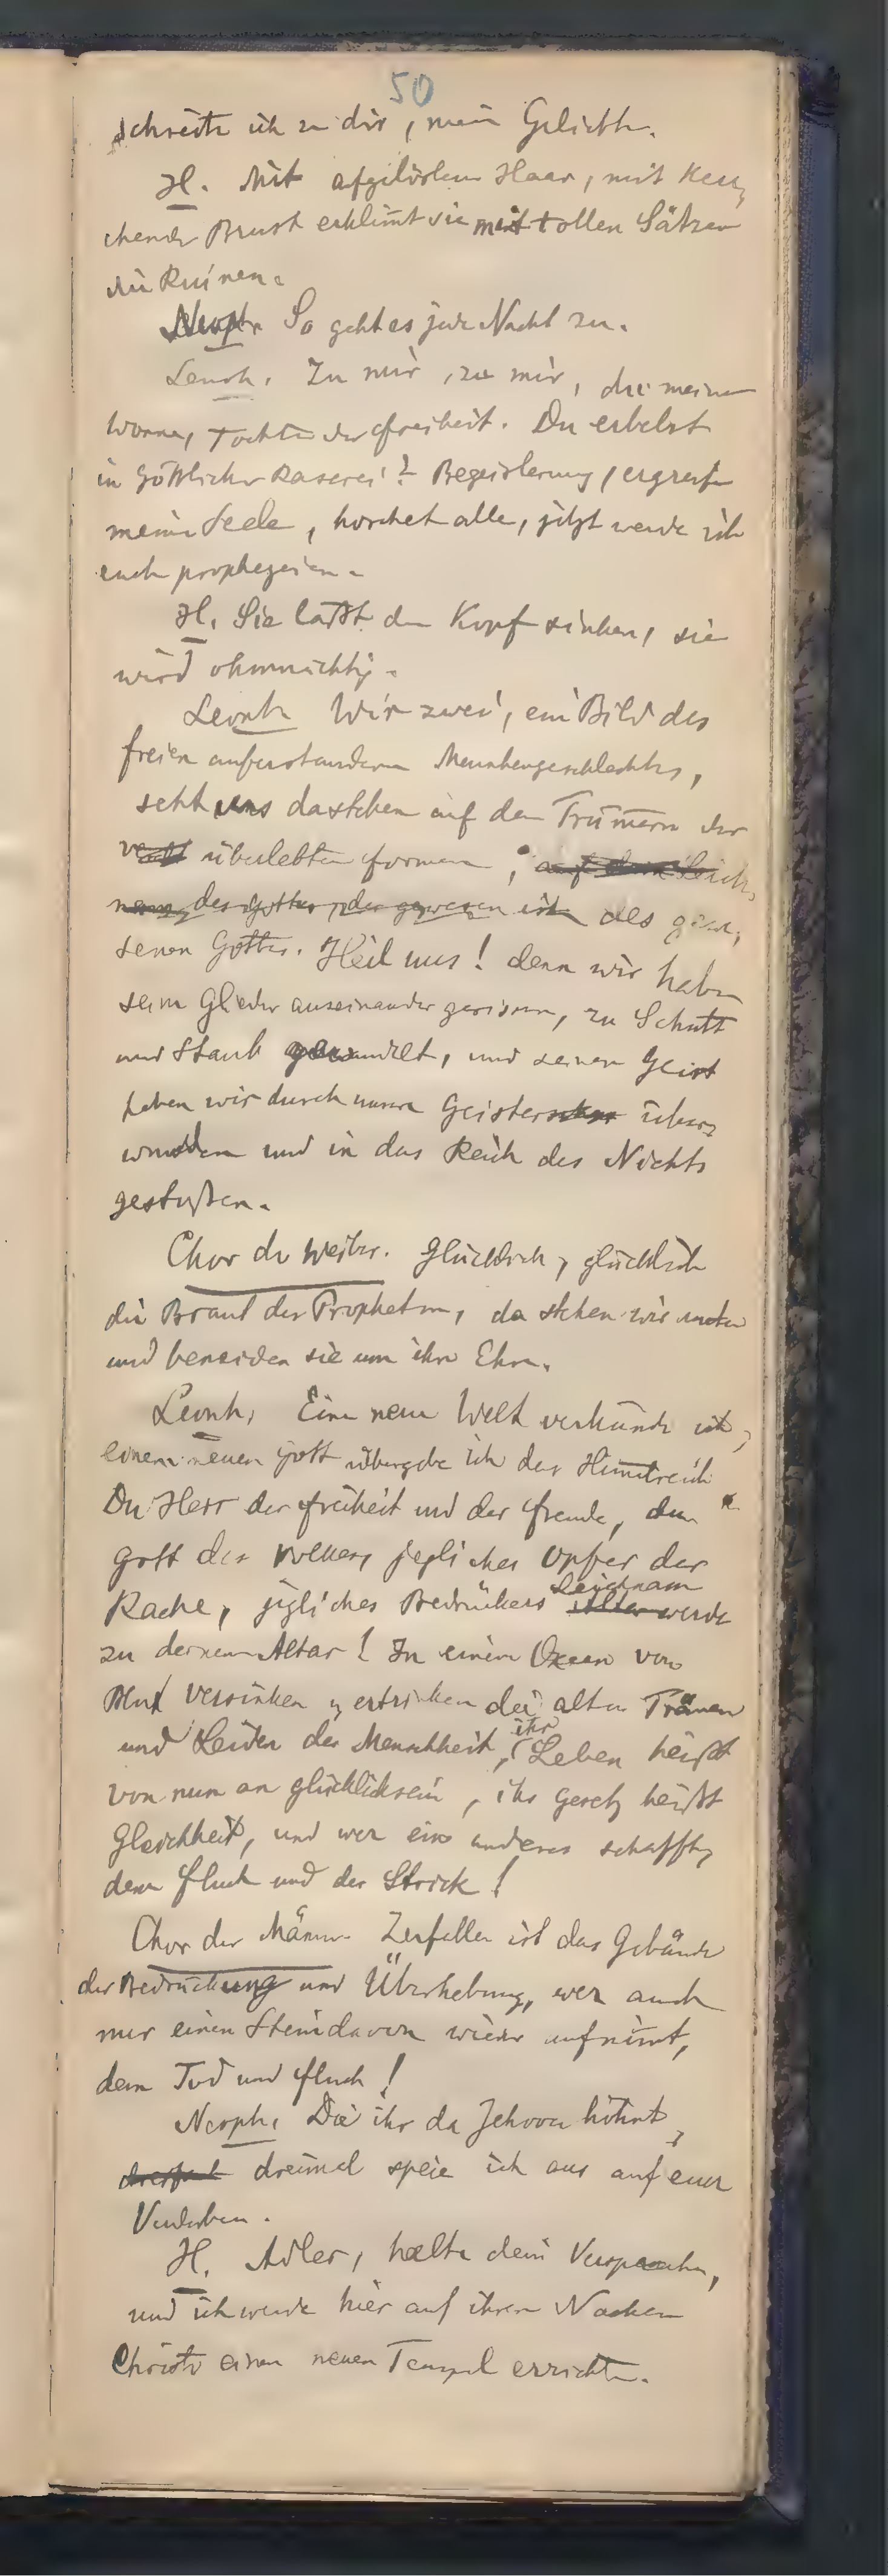 50
schreite ich zu dir, mein Geliebter.
H. Mit afgelösten Haar, mit keu-
chender Brust erklimt sie mit tollen Sätzen
die Ruinen.
Neoph. So geht es jede Nacht zu.
Leonh. Zu mir, zu mir, du meine
Wonne, Tochter der Freiheit. Du erbebst
in göttlicher Raserei! Begeisterung, ergreife
meine Seele, horchet alle, jetzt werde ich
euch prophezeien.
H. Sie läßt den Kopf sinken, sie
wird ohnmächtig.
Leonh. Wir zwei, ein Bild des
freien auferstandenen Menschengeschlechtes,
seht uns dastehen auf den Trümern der
überlebten Formen, auf dem Leich-
nam des Gottes, der gewesen ist des gewe-
senen Gottes. Heil uns! denn wir haben
seine Glieder auseinander gerissen, zu Schutt
und Staub gewandelt, und seinen Geist
haben wir durch unsere Geister über-
wunden und in das Reich des Nichts
gestoßen.
Chor der Weiber. Glücklich, glücklich
die Braut des Propheten, da stehen wir unten
und beneiden sie um ihre Ehre.
Leonh. Eine neue Welt verkünde ich,
einem neuen Gott übergebe ich das Himelreich
Du Herr der Freiheit und der Freude, du
Gott des Volkes, jegliches Opfer der
Rache, jegliches Bedrückers Leichnam werde
zu deinem Altar! In einem Ozean von
Blut versinken u ertrinken die alten Tränen
und Leiden der Menschheit, ihr Leben heißt
von nun an glücklichsein, ihr Gesetz heißt
Gleichheit, und wer ein anderes schafft,
dem Fluch und der Strick!
Chor der Männer. Zerfallen ist das Gebäude
der Bedrückung und Überhebung, wer auch
nur einen Stein davon wieder aufnimt,
dem Tod und Fluch!
Neoph. Die ihr da Jehova höhnt,
dreimal speie ich aus auf euer
Verderben.
H. Adler, halte dein Versprechen,
und ich werde hier auf ihren Nacken
Christo einen neuen Tempel errichten.